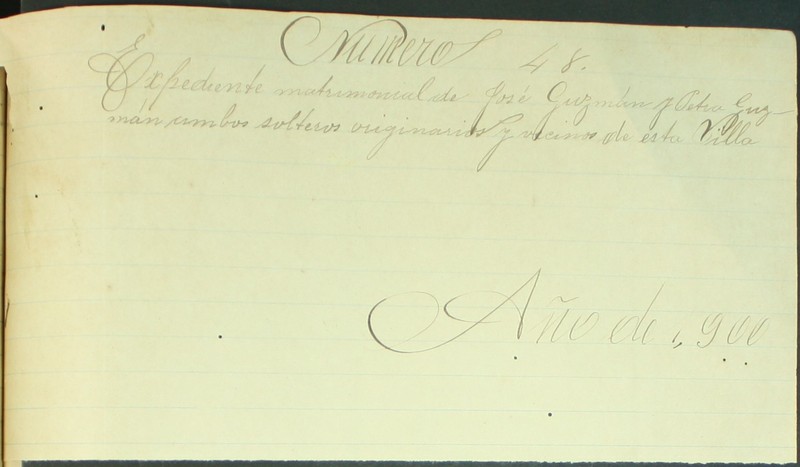 Numero 48.
Expediente matrimonial de José Guzmán y Petra Guz-
mán ambos solteros originarios y vecinos de esta Villa
Año de 1,900